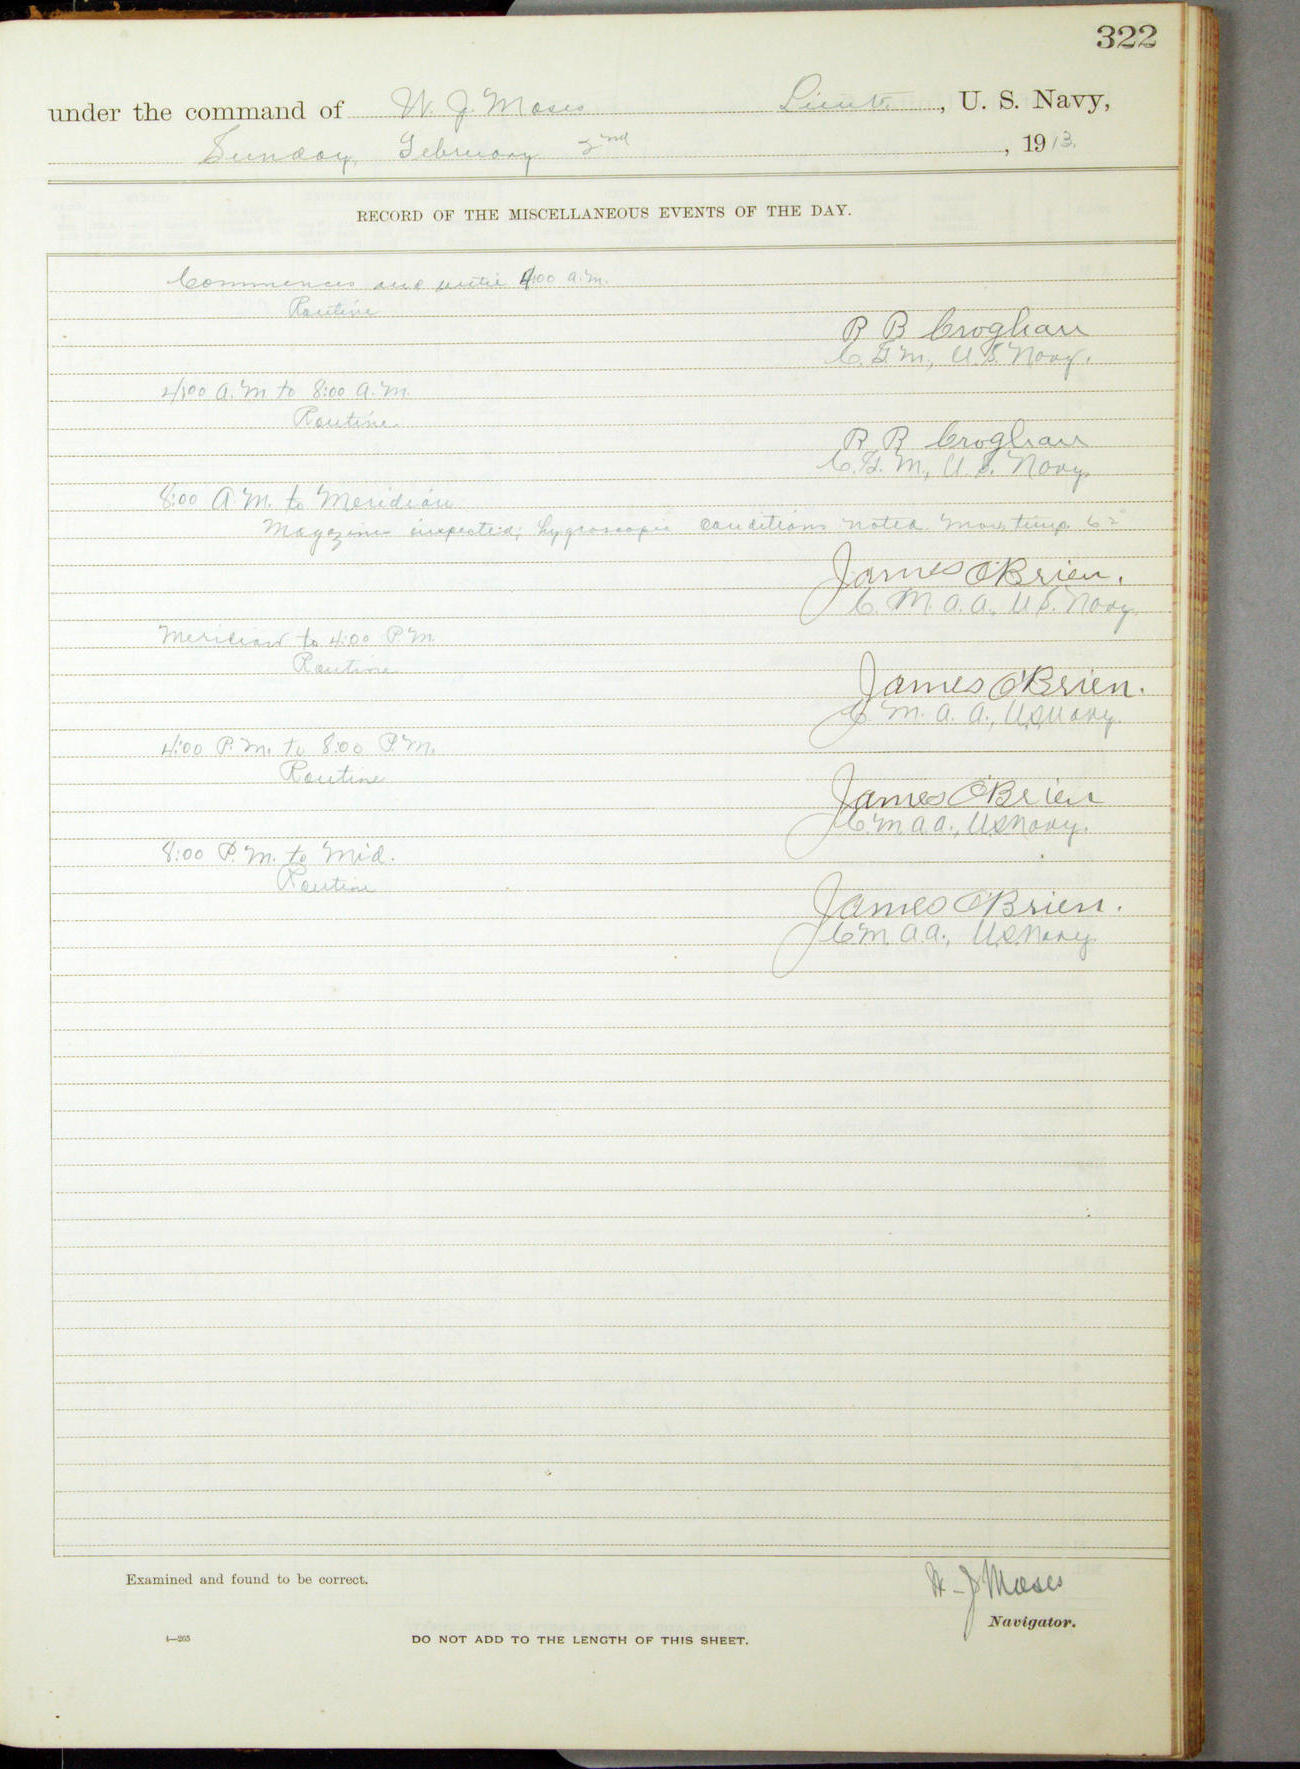 322
under the command of W. J. Moses Lieut., U. S. Navy,
Sunday, February 2nd, 1913.
RECORD OF THE MISCELLANEOUS EVENTS OF THE DAY.
Commences and until 4:00 a.m.
Routine
R B Croghan
C. G. M., U.S. Navy.
4:00 A.M. to 8:00 A.M.
Routine
R B Croghan
C. G. M., U.S. Navy.
8:00 A.M. to Meridian
Magazines inspected; hygroscopic conditions noted. Max. temp. 62°
James O'Brien.
C. M. a. a. U.S. Navy.
Meridian to 4:00 P.M.
Routine
James O'Brien.
C. M. a. a., U.S. Navy.
4:00 P.M. to 8:00 P.M.
Routine
James O'Brien
C. M. a. a., U.S. Navy.
8:00 P.M. to Mid.
Routine
James O'Brien.
C. M. a. a., U.S. Navy
Examined and found to be correct.
W-J Moses
Navigator.
1—265
DO NOT ADD TO THE LENGTH OF THIS SHEET.